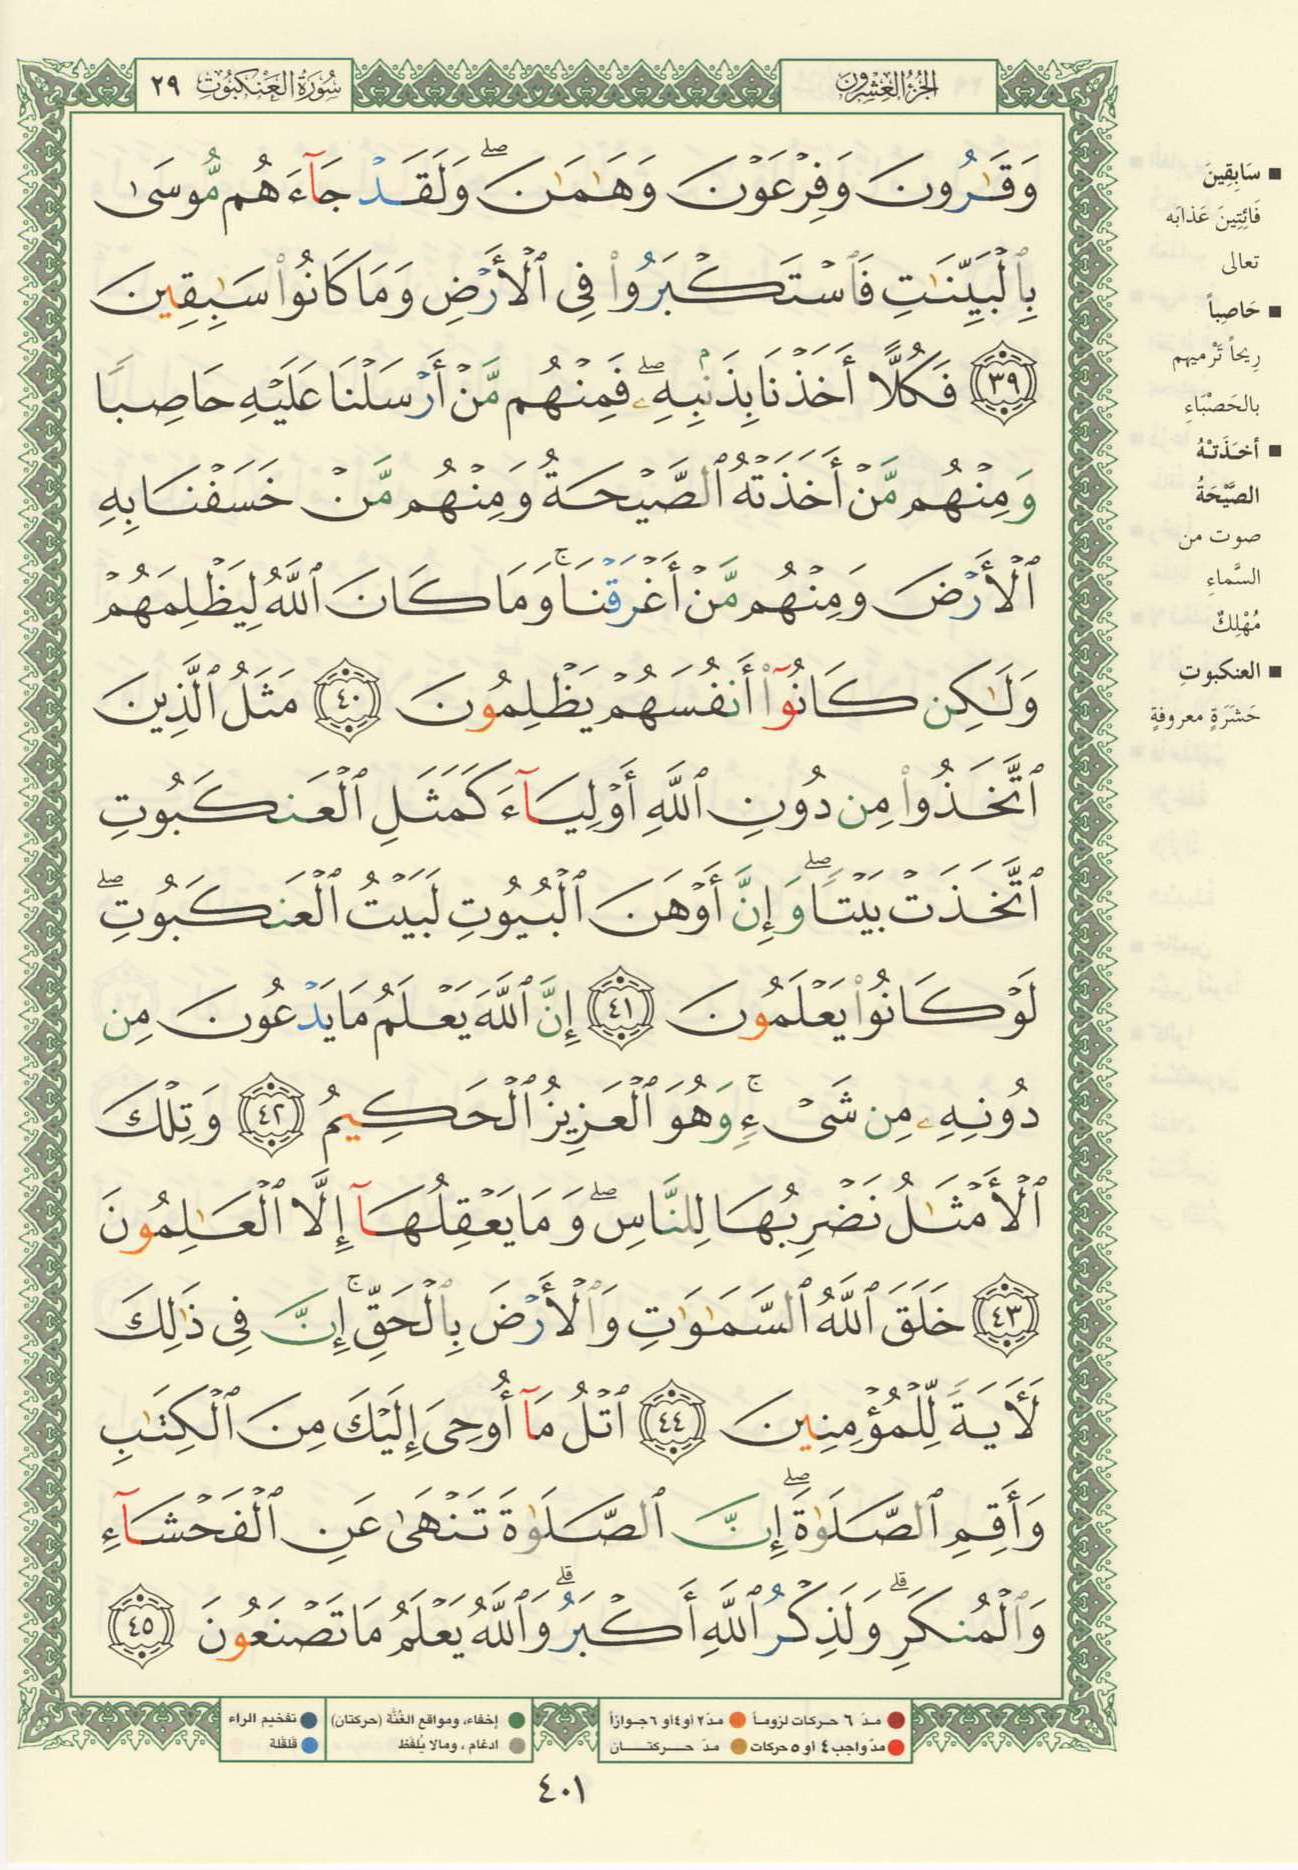 الجزء العشرون
سورة العنكبوت ٢٩
وَقَـٰرُونَ وَفِرْعَوْنَ وَهَـٰمَـٰنَ ۖ وَلَقَدْ جَآءَهُم مُّوسَىٰ
بِٱلْبَيِّنَـٰتِ فَٱسْتَكْبَرُوا۟ فِى ٱلْأَرْضِ وَمَا كَانُوا۟ سَـٰبِقِينَ
٣٩ فَكُلًّا أَخَذْنَا بِذَنۢبِهِۦ ۖ فَمِنْهُم مَّنْ أَرْسَلْنَا عَلَيْهِ حَاصِبًا
وَمِنْهُم مَّنْ أَخَذَتْهُ ٱلصَّيْحَةُ وَمِنْهُم مَّنْ خَسَفْنَا بِهِ
ٱلْأَرْضَ وَمِنْهُم مَّنْ أَغْرَقْنَا ۚ وَمَا كَانَ ٱللَّهُ لِيَظْلِمَهُمْ
وَلَـٰكِن كَانُوٓا۟ أَنفُسَهُمْ يَظْلِمُونَ ٤٠ مَثَلُ ٱلَّذِينَ
ٱتَّخَذُوا۟ مِن دُونِ ٱللَّهِ أَوْلِيَآءَ كَمَثَلِ ٱلْعَنكَبُوتِ
ٱتَّخَذَتْ بَيْتًا ۖ وَإِنَّ أَوْهَنَ ٱلْبُيُوتِ لَبَيْتُ ٱلْعَنكَبُوتِ ۖ
لَوْ كَانُوا۟ يَعْلَمُونَ ٤١ إِنَّ ٱللَّهَ يَعْلَمُ مَا يَدْعُونَ مِن
دُونِهِۦ مِن شَىْءٍ ۚ وَهُوَ ٱلْعَزِيزُ ٱلْحَكِيمُ ٤٢ وَتِلْكَ
ٱلْأَمْثَـٰلُ نَضْرِبُهَا لِلنَّاسِ ۖ وَمَا يَعْقِلُهَآ إِلَّا ٱلْعَـٰلِمُونَ
٤٣ خَلَقَ ٱللَّهُ ٱلسَّمَـٰوَٰتِ وَٱلْأَرْضَ بِٱلْحَقِّ ۚ إِنَّ فِى ذَٰلِكَ
لَـَٔايَةً لِّلْمُؤْمِنِينَ ٤٤ ٱتْلُ مَآ أُوحِىَ إِلَيْكَ مِنَ ٱلْكِتَـٰبِ
وَأَقِمِ ٱلصَّلَوٰةَ ۖ إِنَّ ٱلصَّلَوٰةَ تَنْهَىٰ عَنِ ٱلْفَحْشَآءِ
وَٱلْمُنكَرِ ۗ وَلَذِكْرُ ٱللَّهِ أَكْبَرُ ۗ وَٱللَّهُ يَعْلَمُ مَا تَصْنَعُونَ ٤٥
■ سَابِقِينَ
فَائِتِينَ عَذَابَه
تعالى
■ حَاصِباً
رِيحاً تَرْمِيهم
بالحَصْبَاءِ
■ أخذَتهُ
الصَّيْحَةُ
صوت من
السَّماءِ
مُهْلِكٌ
■ العنكبوتِ
حَشَرَةٍ معروفةٍ
مدّ ٦ حركات لزوماً
مدّ ٢ أو ٤ أو ٦ جوازاً
مدّ واجب ٤ أو ٥ حركات
مدّ حركتان
إخفاء، ومواقع الغُنَّة (حركتان)
تفخيم الراء
ادغام ، ومالا يُلفَظ
قلقلة
٤٠١